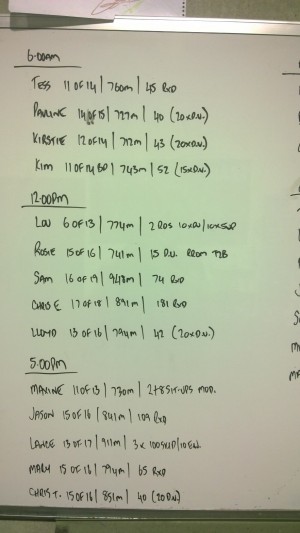 6:00AM
TESS 11 OF 14 | 760m | 45 RXD
PAULINE 14 OF 15 | 727m | 40 (20xD.U.)
KIRSTIE 12 OF 14 | 712m | 43 (20xD.U.)
KIM 11 OF 14 | 743m | 52 (15xD.U.)
12:00PM
LOU 6 OF 13 | 774m | 2 RDS
ROSIE 15 OF 16 | 741m | 15 D.U. T2B
SAM 16 OF 19 | 948m | 74 RXD
CHRIS E 17 OF 18 | 891m | 181 RXD
LLOYD 13 OF 16 | 794m | 42 (20xD.U.)
5:00PM
MAXINE 11 OF 13 | 730m | SIT-UPS MOD.
JASON 15 OF 16 | 841m | 109 RXD
LANCE 13 OF 17 | 911m | 3 x
MARK 15 OF 16 | 794m | 65 RXD
CHRIS T. 15 OF 16 | 851m | 40 (20 D.U)